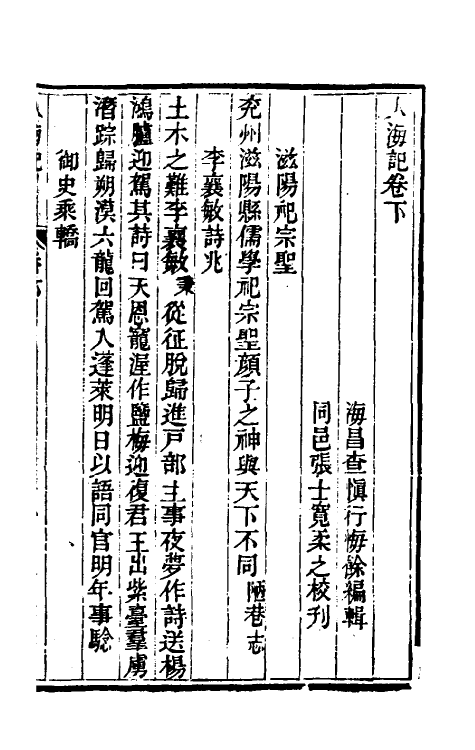 人海記卷下
海昌查慎行悔餘編輯
同邑張士寬柔之校刊
滋陽祀宗聖
兖州滋陽縣儒學祀宗聖顔子之神與天下不同陋巷志
李襄敏詩兆
土木之難李襄敏秉從征脫歸進戸部主事夜夢作詩送楊
鴻臚迎駕其詩曰天恩寵渥作鹽梅迎復君王出紫臺羣虜
潛踪歸朔漠六龍回駕入蓬萊明日以語同官明年事騐
御史乘轎
人海記